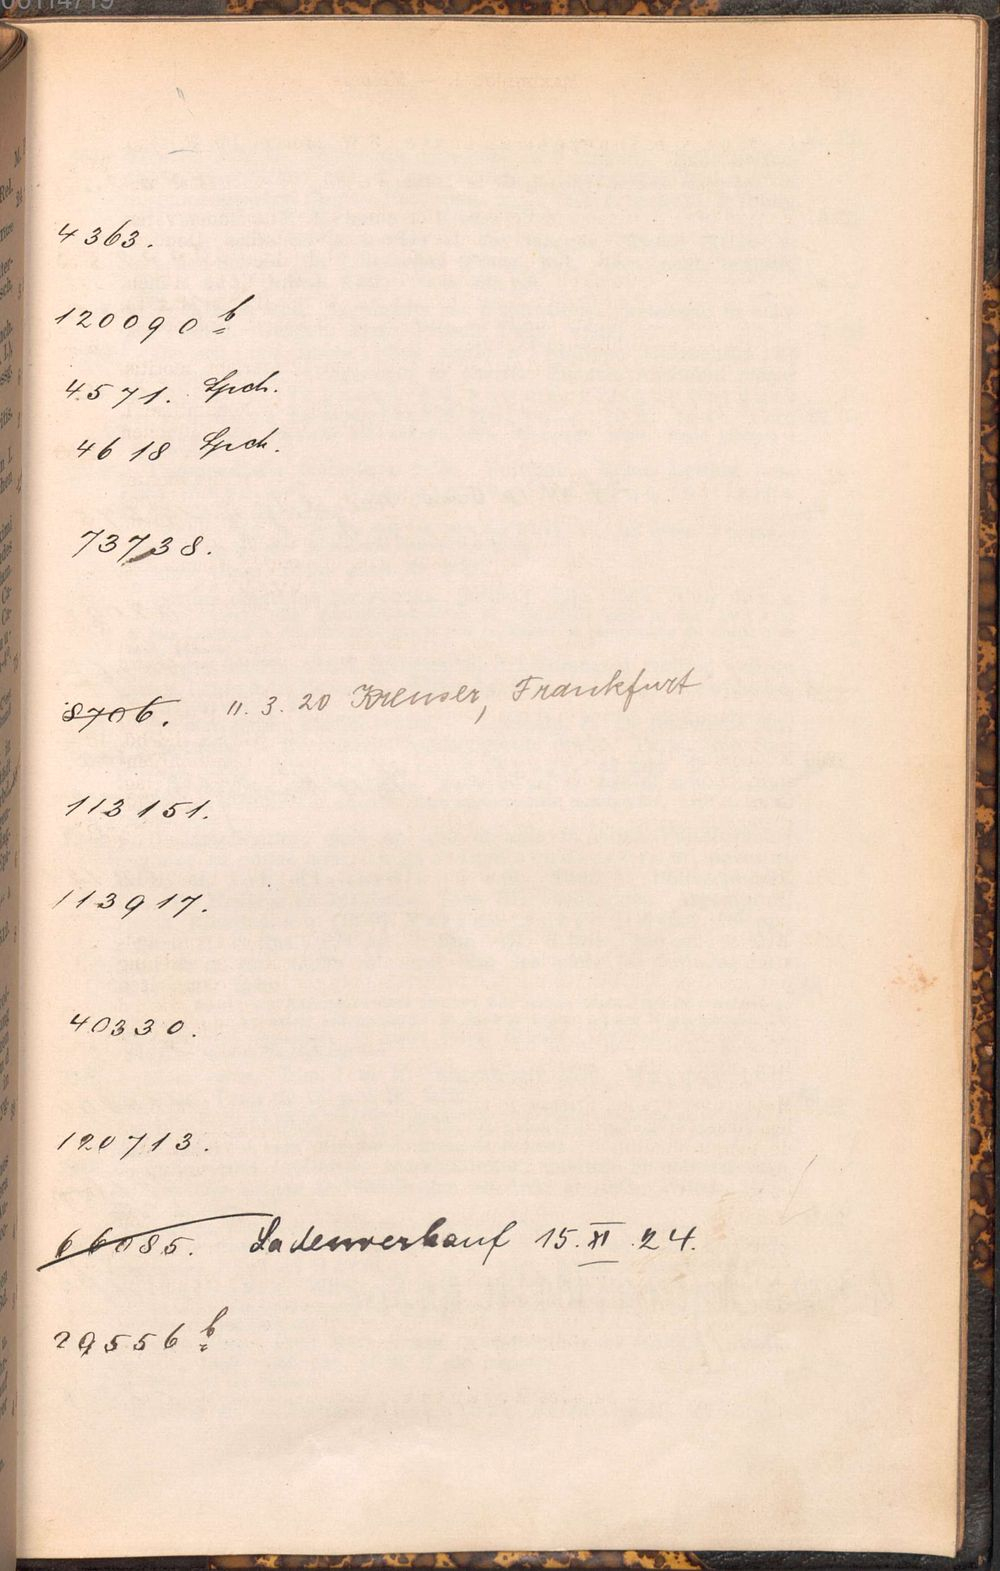 4363.
120090 b
4571. Spch.
4618 Spch.
73738.
8706. 11. 3. 20 Kreuser, Frankfurt
113151.
113917.
40330.
120713.
66085. Ladenverkauf 15. XI. 24.
29556 b